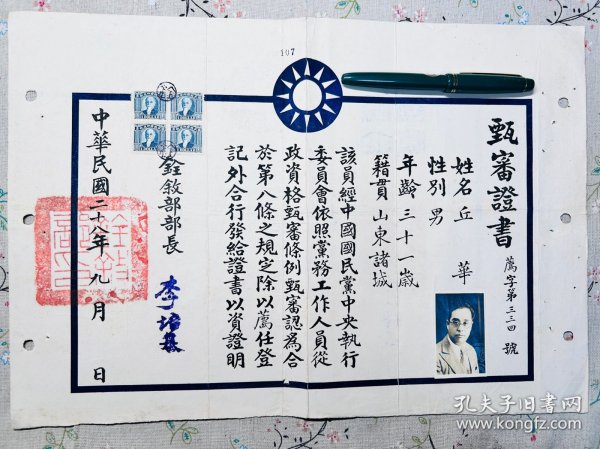 107
甄審證書
薦字第三三四號
姓名 丘 華
性別 男
年齡 三十一歲
籍貫 山東諸城
該員經中國國民黨中央執行
委員會依照黨務工作人員從
政資格甄審條例甄審認為合
於第八條之規定除以薦任登
記外合行發給證書以資證明
銓敘部部長
李培基
中華民國二十八年九月 日
孔夫子旧书网
www.kongfz.com